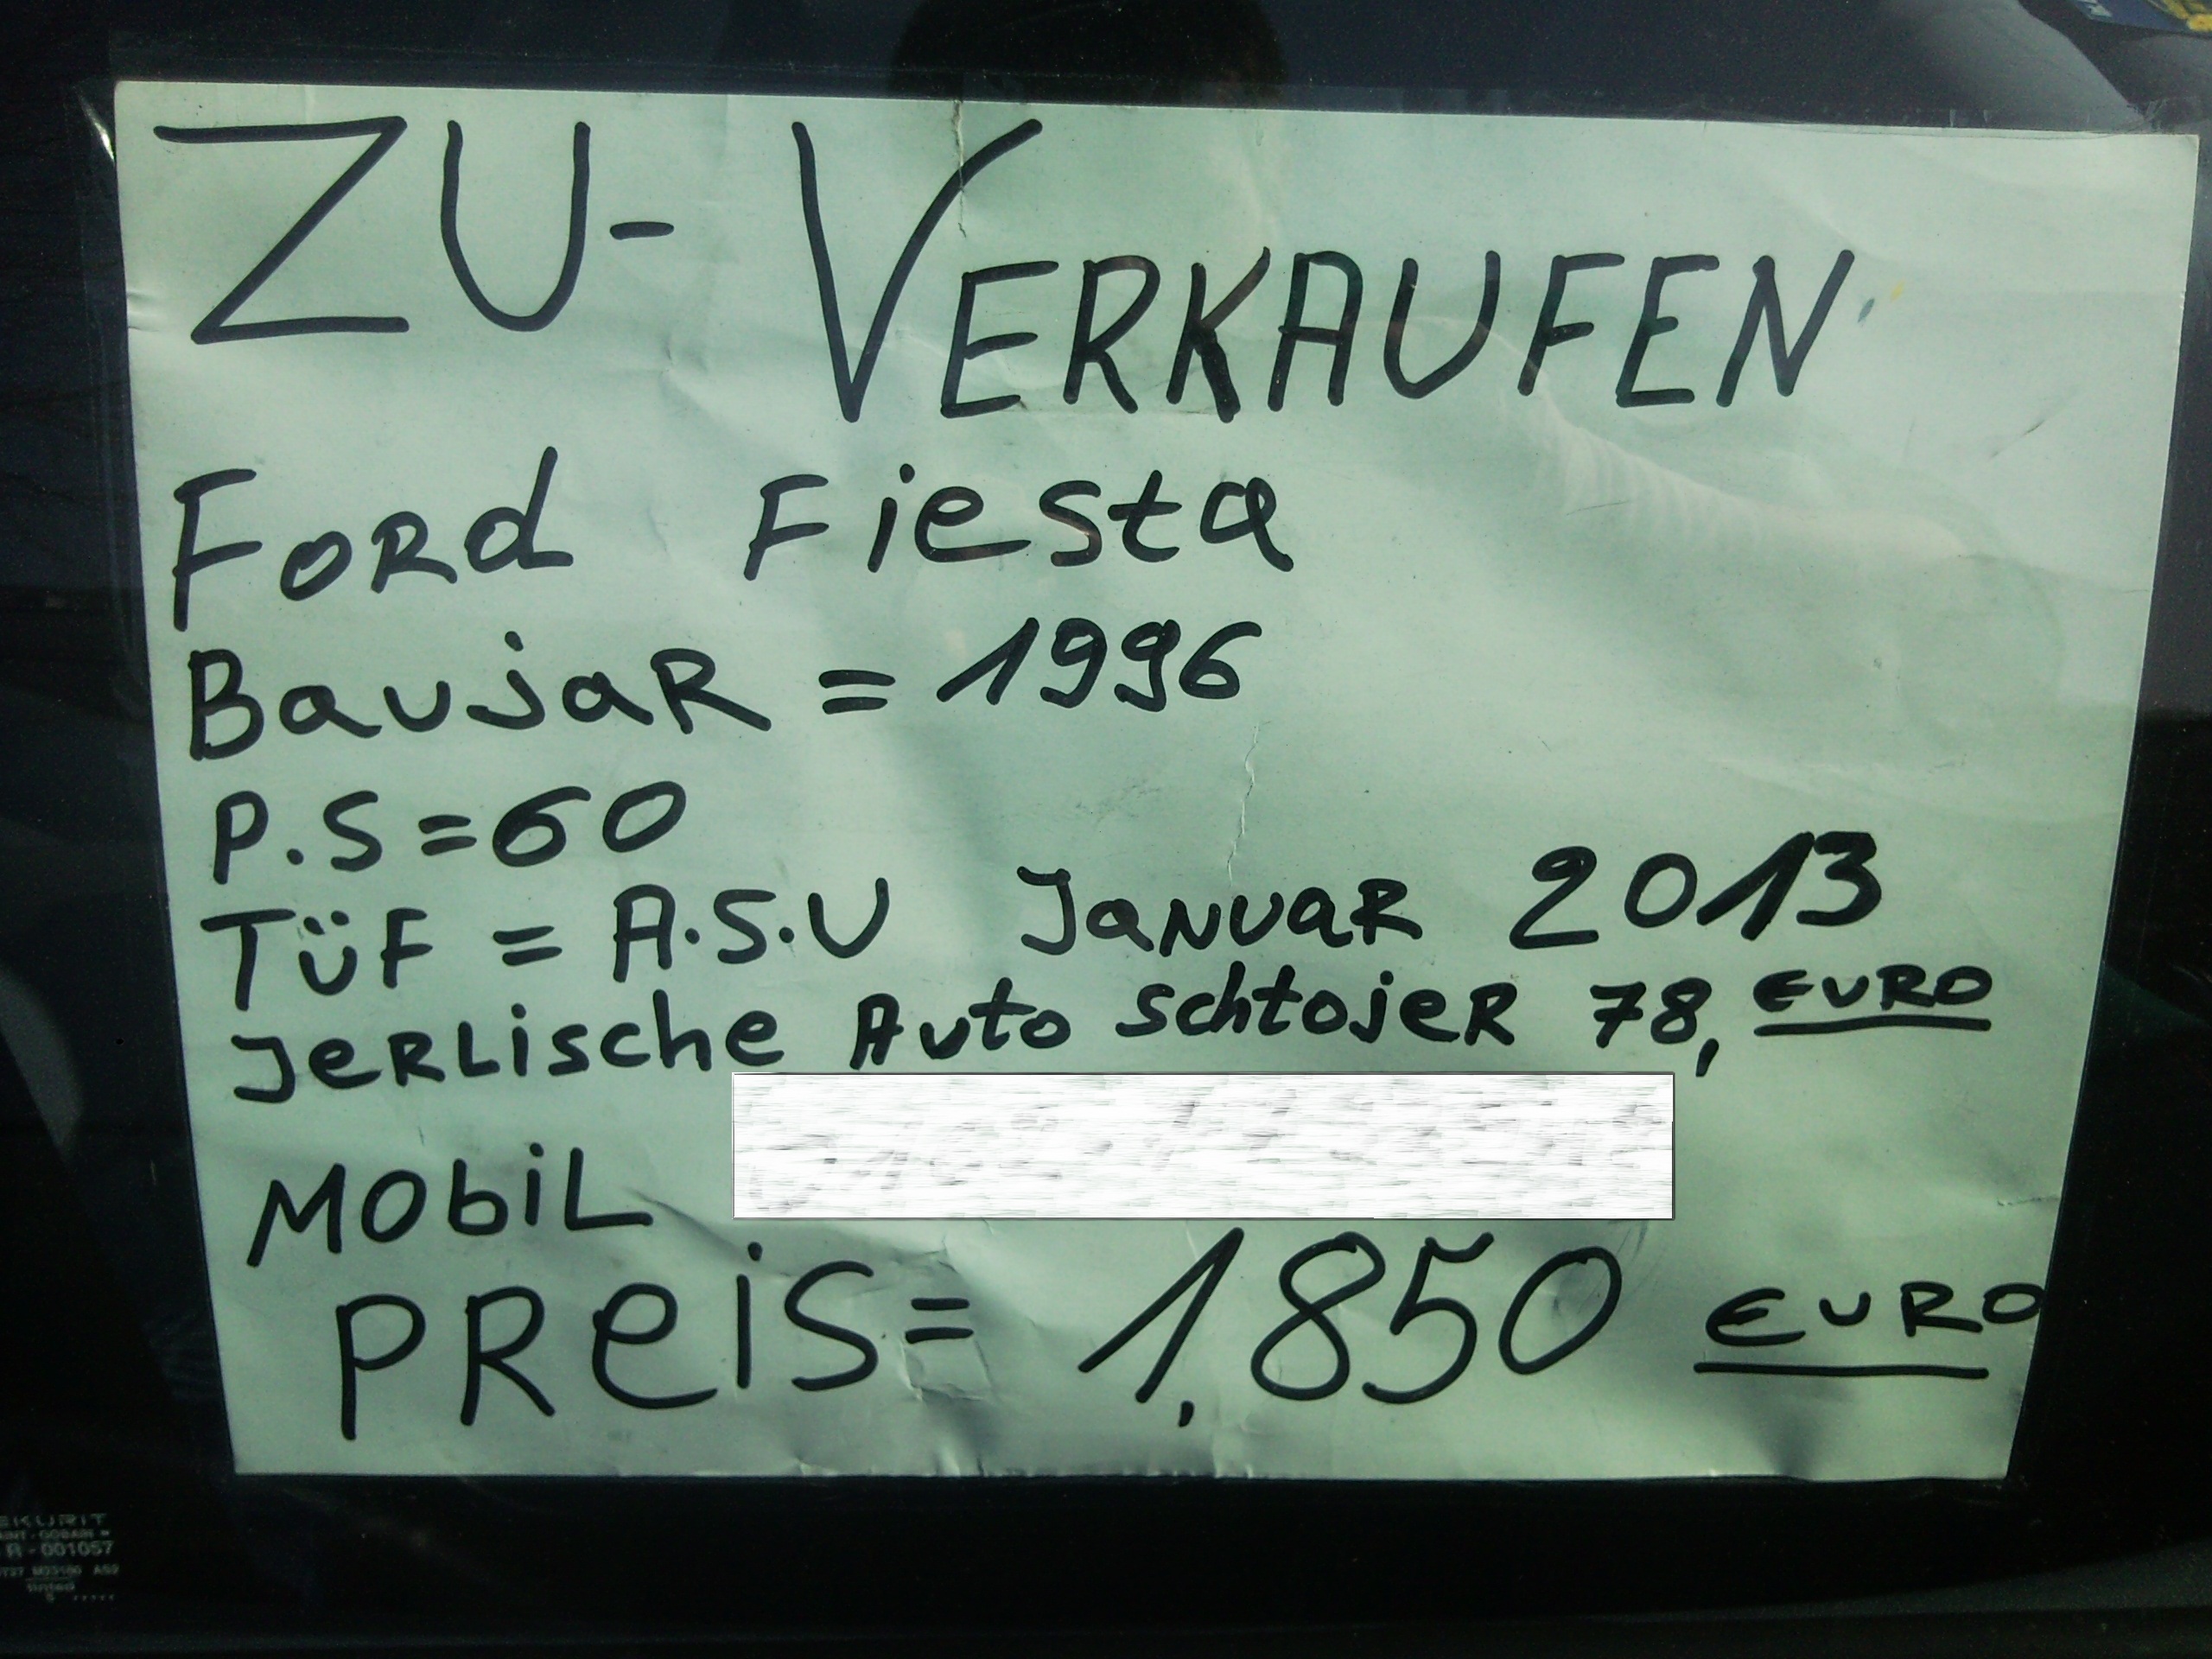 ZU- VERKAUFEN
FORd Fiesta
BaujaR = 1996
P.S = 60
TüF = A.S.U JaNUaR 2013
JeRLische Auto SchtojeR 78, EURO
MobiL
PReiS = 1,850 EURO
EKURIT
R-001057